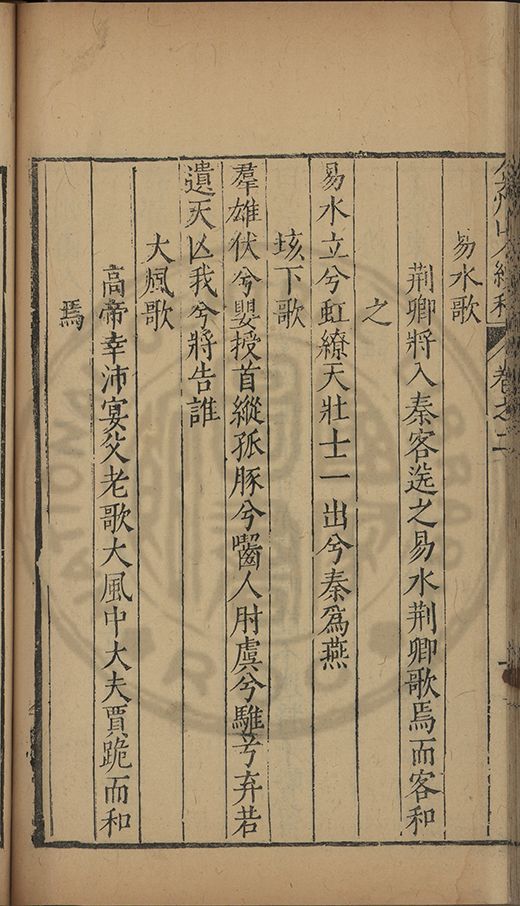 易水歌
荆卿將入秦客送之易水荆卿歌焉而客和
之
易水立兮虹繚天壯士一出兮秦爲燕
垓下歌
羣雄伏兮嬰授首縱孤豚兮囓人肘虞兮騅兮弃若
遺天凶我兮將告誰
大風歌
高帝幸沛宴父老歌大風中大夫賈跪而和
焉
卷之二